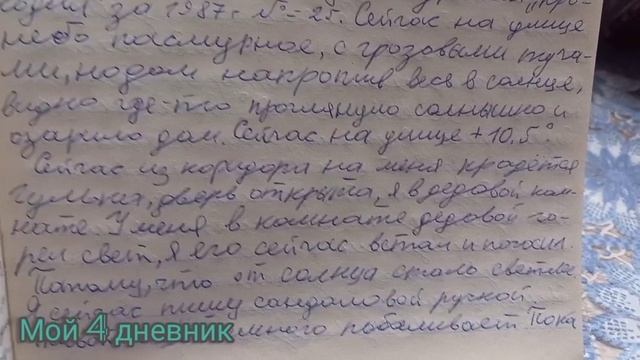 за 1987 г. №-25. Сейчас на улице
небо пасмурное, с грозовыми туча-
ми, но дом напротив весь в солнце,
видно где-то проглянуло солнышко и
озарило дом. Сейчас на улице +10,5°.
Сейчас из коридора на меня крадётся
Гулька, дверь открыта, я в дедовой ком-
нате. У меня в комнате дедовой го-
рел свет, я его сейчас встал и погасил.
Потому, что от солнца стало светлее
Я сейчас пишу сандаловой ручкой
побаливает Пока
Мой 4 дневник